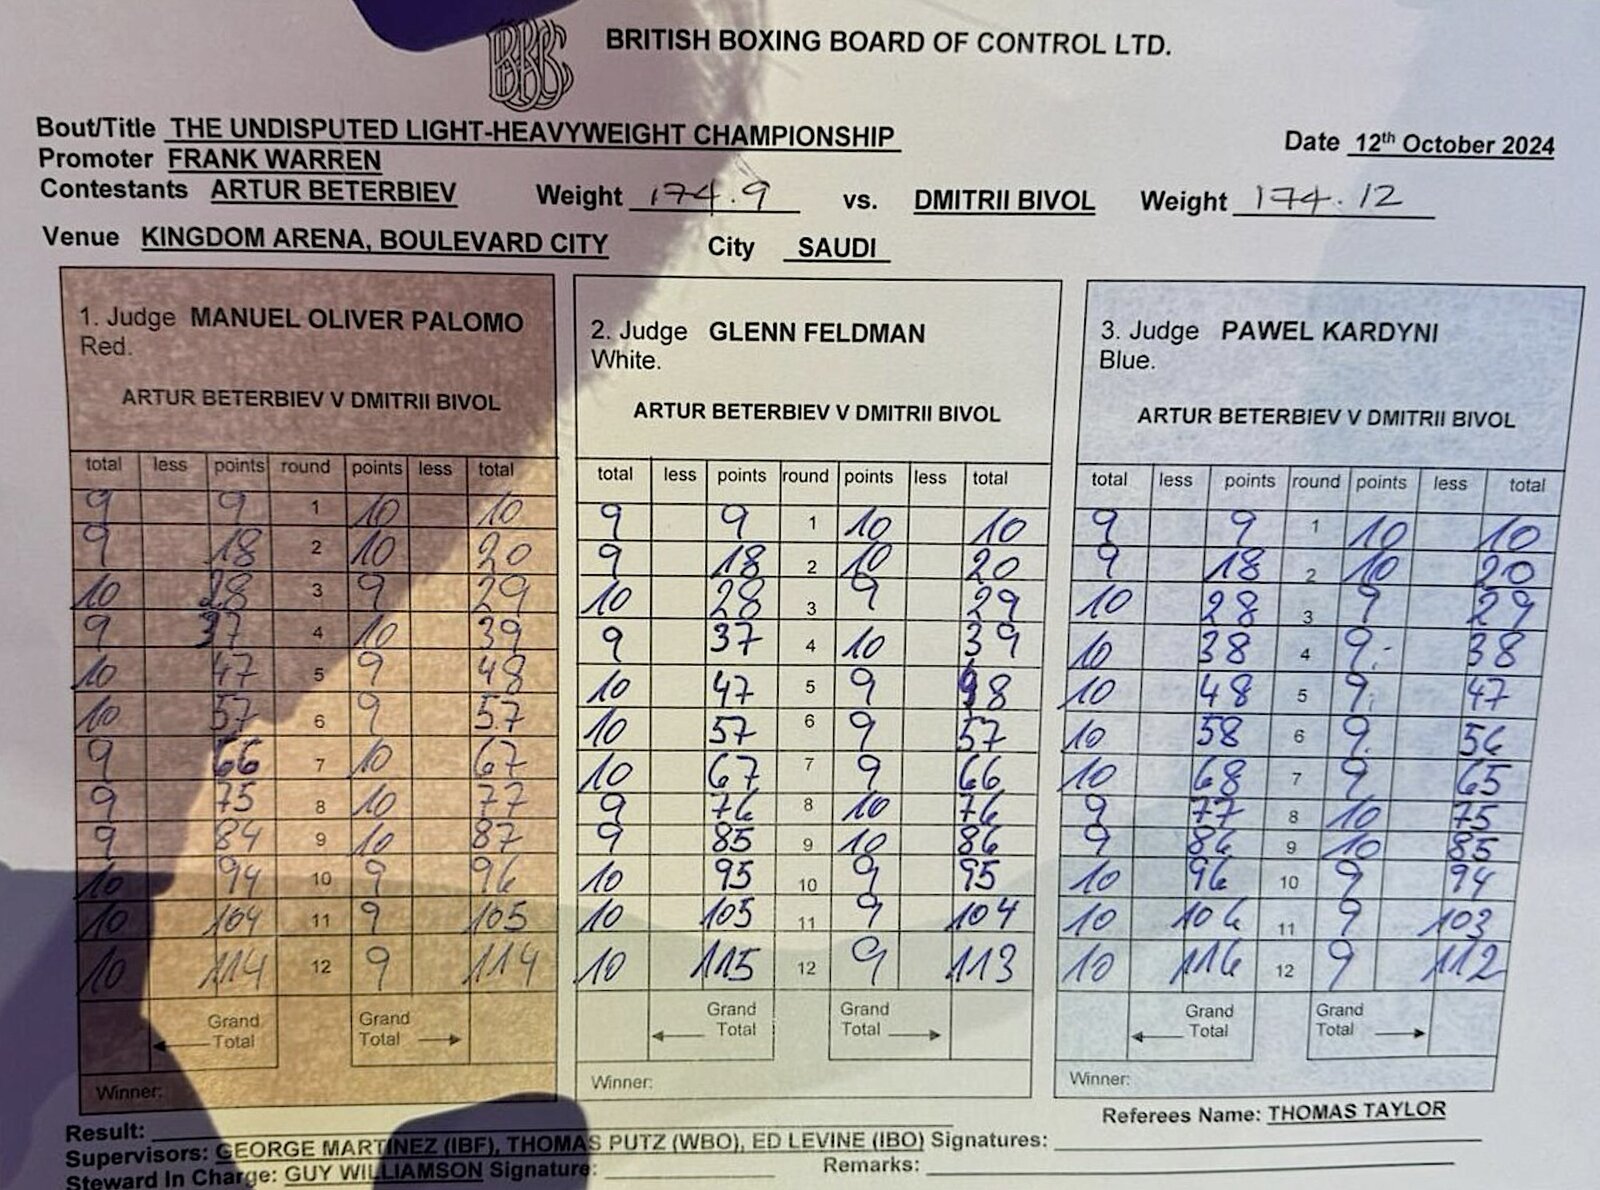 BBBC
BRITISH BOXING BOARD OF CONTROL LTD.
Bout/Title THE UNDISPUTED LIGHT-HEAVYWEIGHT CHAMPIONSHIP Date 12th October 2024
Promoter FRANK WARREN
Contestants ARTUR BETERBIEV Weight 174.9 vs. DMITRII BIVOL Weight 174.12
Venue KINGDOM ARENA, BOULEVARD CITY City SAUDI
1. Judge MANUEL OLIVER PALOMO
Red.
ARTUR BETERBIEV V DMITRII BIVOL
total less points round points less total
9 9 1 10 10
9 18 2 10 20
10 28 3 9 29
9 37 4 10 39
10 47 5 9 48
10 57 6 9 57
9 66 7 10 67
9 75 8 10 77
9 84 9 10 87
10 94 10 9 96
10 104 11 9 105
10 114 12 9 114
Grand Grand
Total Total
Winner:
2. Judge GLENN FELDMAN
White.
ARTUR BETERBIEV V DMITRII BIVOL
total less points round points less total
9 9 1 10 10
9 18 2 10 20
10 28 3 9 29
9 37 4 10 39
10 47 5 9 48
10 57 6 9 57
10 67 7 9 66
9 76 8 10 76
9 85 9 10 86
10 95 10 9 95
10 105 11 9 104
10 115 12 9 113
Grand Grand
Total Total
Winner:
3. Judge PAWEL KARDYNI
Blue.
ARTUR BETERBIEV V DMITRII BIVOL
total less points round points less total
9 9 1 10 10
9 18 2 10 20
10 28 3 9 29
10 38 4 9 38
10 48 5 9 47
10 58 6 9 56
10 68 7 9 65
9 77 8 10 75
9 86 9 10 85
10 96 10 9 94
10 106 11 9 103
10 116 12 9 112
Grand Grand
Total Total
Winner:
Referees Name: THOMAS TAYLOR
Result:
Supervisors: GEORGE MARTINEZ (IBF), THOMAS PUTZ (WBO), ED LEVINE (IBO) Signatures:
Steward In Charge: GUY WILLIAMSON Signature: Remarks: